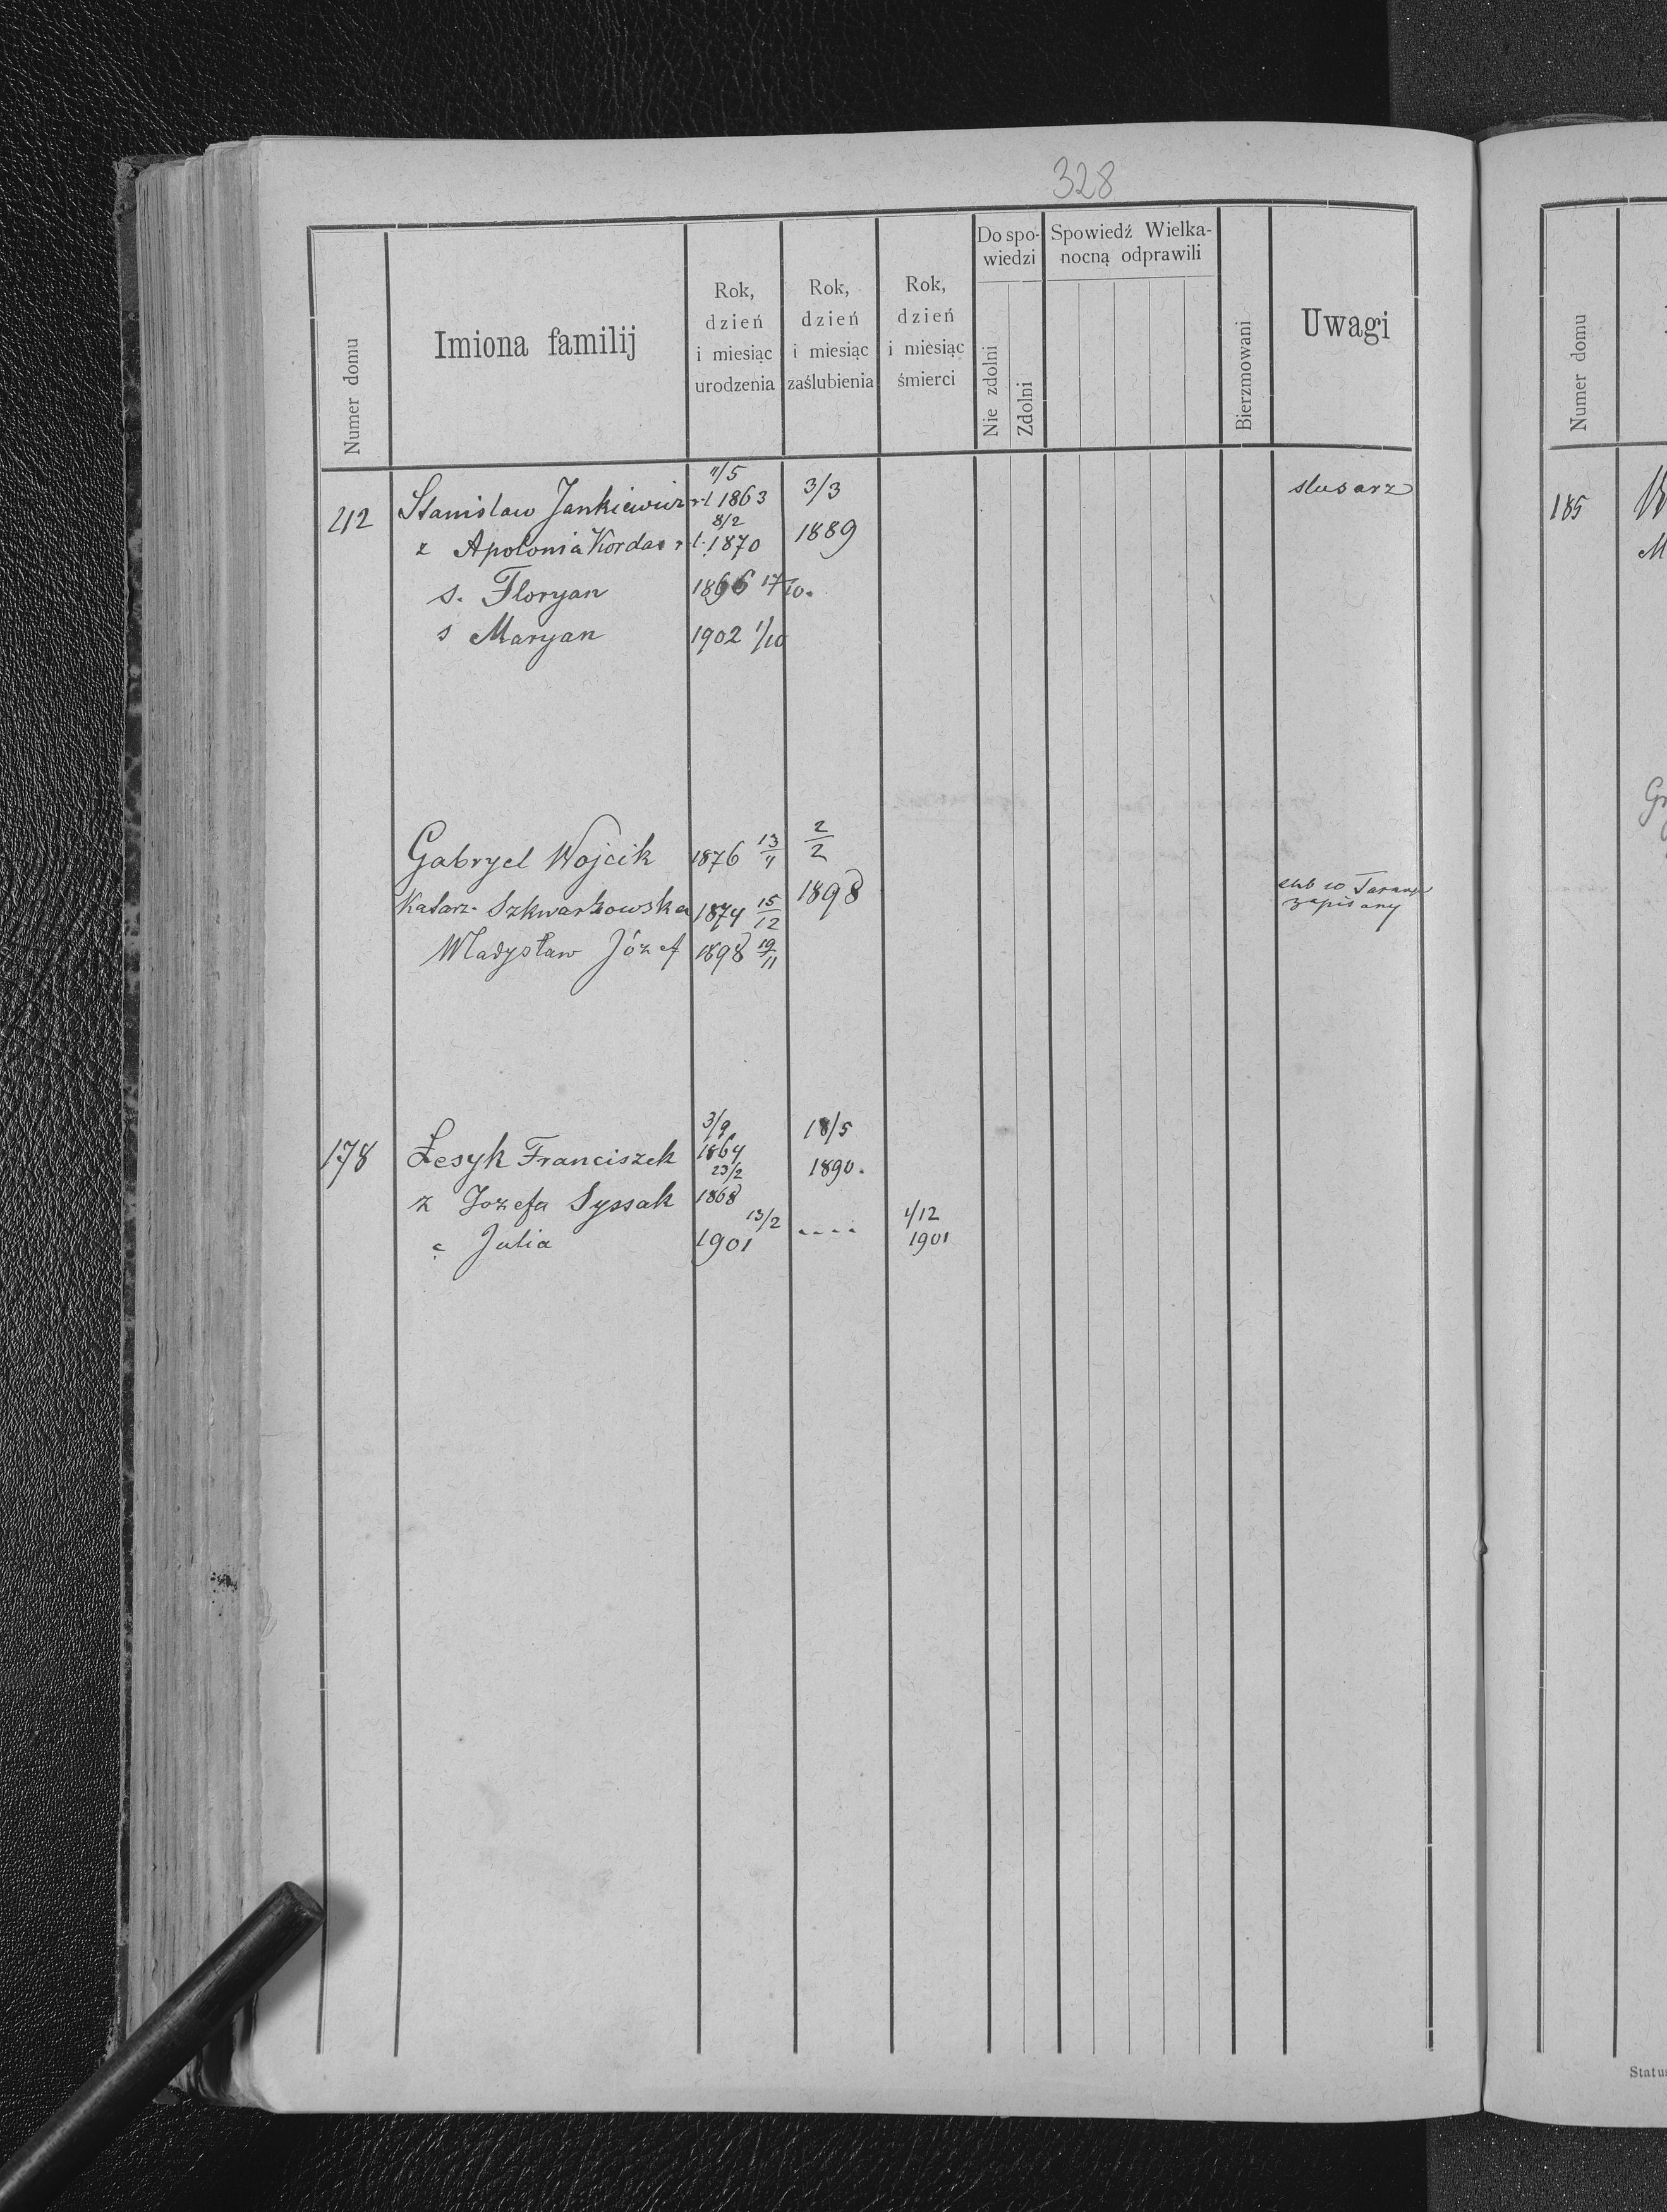 328
Numer domu
Imiona familij
Rok, dzień i miesiąc urodzenia
Rok, dzień i miesiąc zaślubienia
Rok, dzień i miesiąc śmierci
Do spowiedzi
Nie zdolni
Zdolni
Spowiedź Wielkanocną odprawili
Bierzmowani
Uwagi
212 Stanislaw Jankiewicz r.l. 1863 11/5 3/3 slusarz
z Apolonia Kordas r.l. 1870 8/2 1889
s. Floryan 1896 17/10.
s Maryan 1902 1/10
Gabryel Wojcik 1876 13/4 2/2
Katarz. Szkwarkowska 1874 15/12 1898
zapisany
Władysław Józef 1898 19/11
178 Łesyk Franciszek 3/9 1864 18/5 1890.
z Jozefa Syssak 23/2 1868
c Julia 13/2 1901 ---- 4/12 1901
Numer domu
185
Status